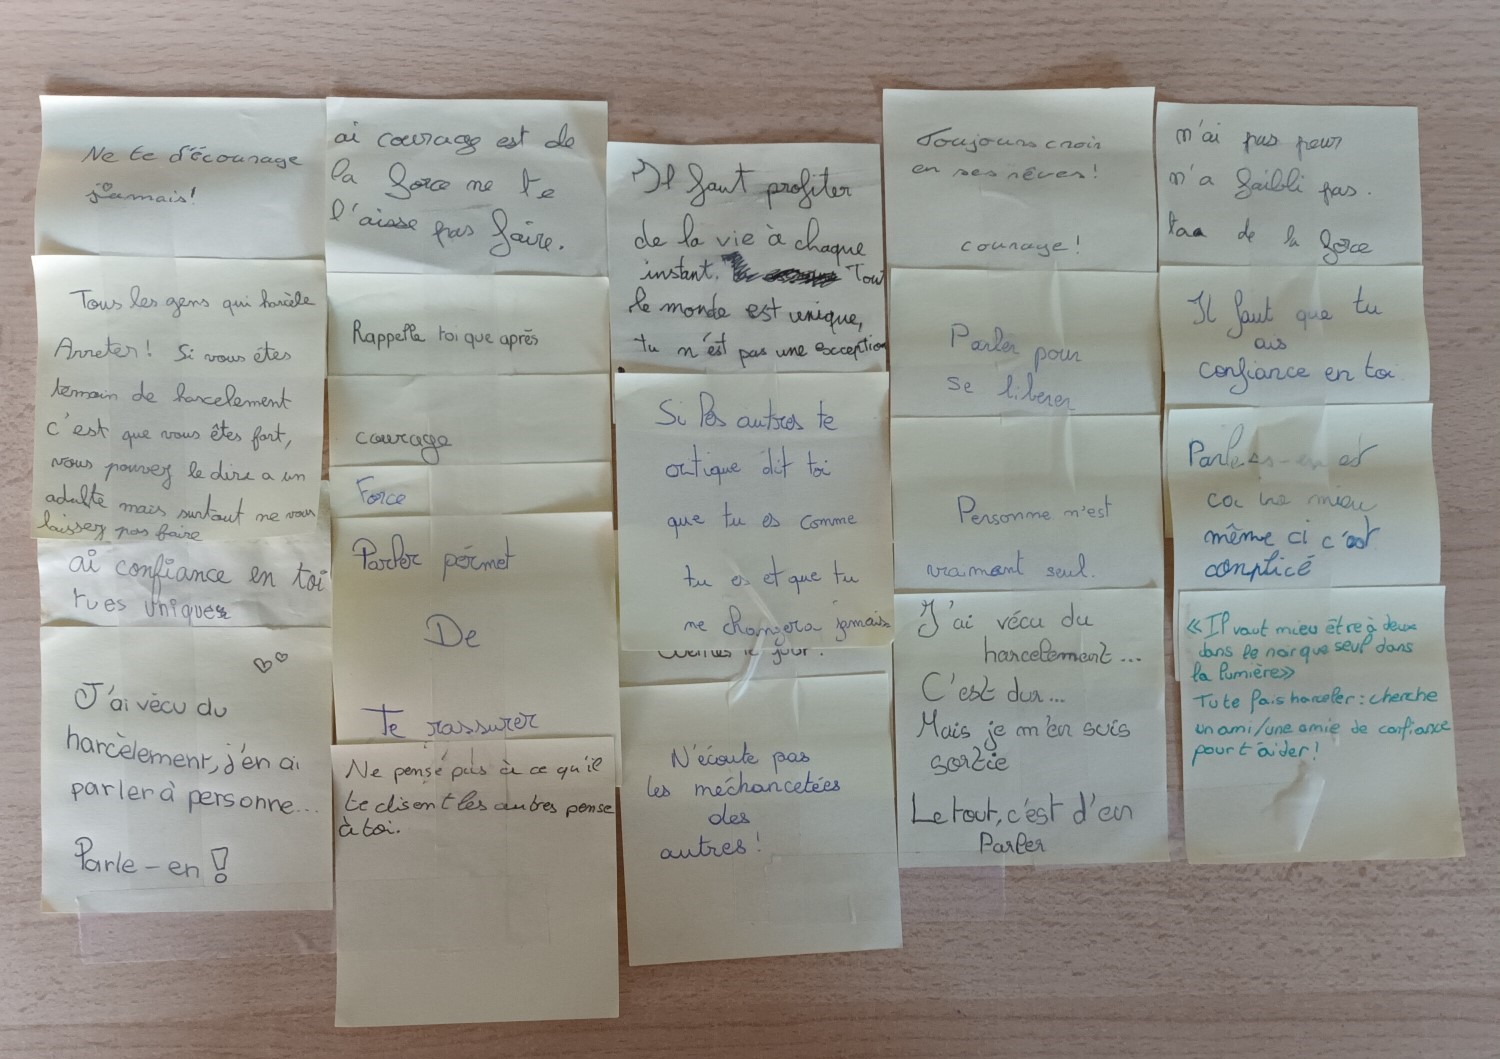 Ne te d'écourage
jamais!
Tous les gens qui harcèle
Arreter! Si vous êtes
temoin de harcelement
c'est que vous êtes fort,
vous pouvez le dire a un
adulte mais surtout ne vous
laissez pas faire
ai confiance en toi
tu es uniques
J'ai vécu du
harcèlement, j'en ai
parler à personne...
Parle-en!
ai courage est de
la force ne te
l'aisse pas faire.
Rappelle toi que après
courage
Force
Parler pérmet
De
Te rassurer
Ne pense pas à ce qu'il
te disent les autres pense
à toi.
Il faut profiter
de la vie à chaque
instant. Tout
le monde est unique,
tu n'est pas une exception
Si les autres te
critique dit toi
que tu es comme
tu es et que tu
ne changera jamais
le jour.
N'écoute pas
les méchancetées
des
autres!
Toujours croir
en ses rêves!
courage!
Parler pour
se liberer
Personne n'est
vraiment seul.
J'ai vécu du
harcelement...
C'est dur...
Mais je m'en suis
sortie
Le tout, c'est d'en
Parler
n'ai pas peur
n'a faibli pas.
de la force
Il faut que tu
ais
confiance en toi
mieu
même ci c'est
complicé
«Il vaut mieu être à deux
dans le noir que seul dans
la lumière»
Tu te fais harceler: cherche
un ami/une amie de confiance
pour t'aider!